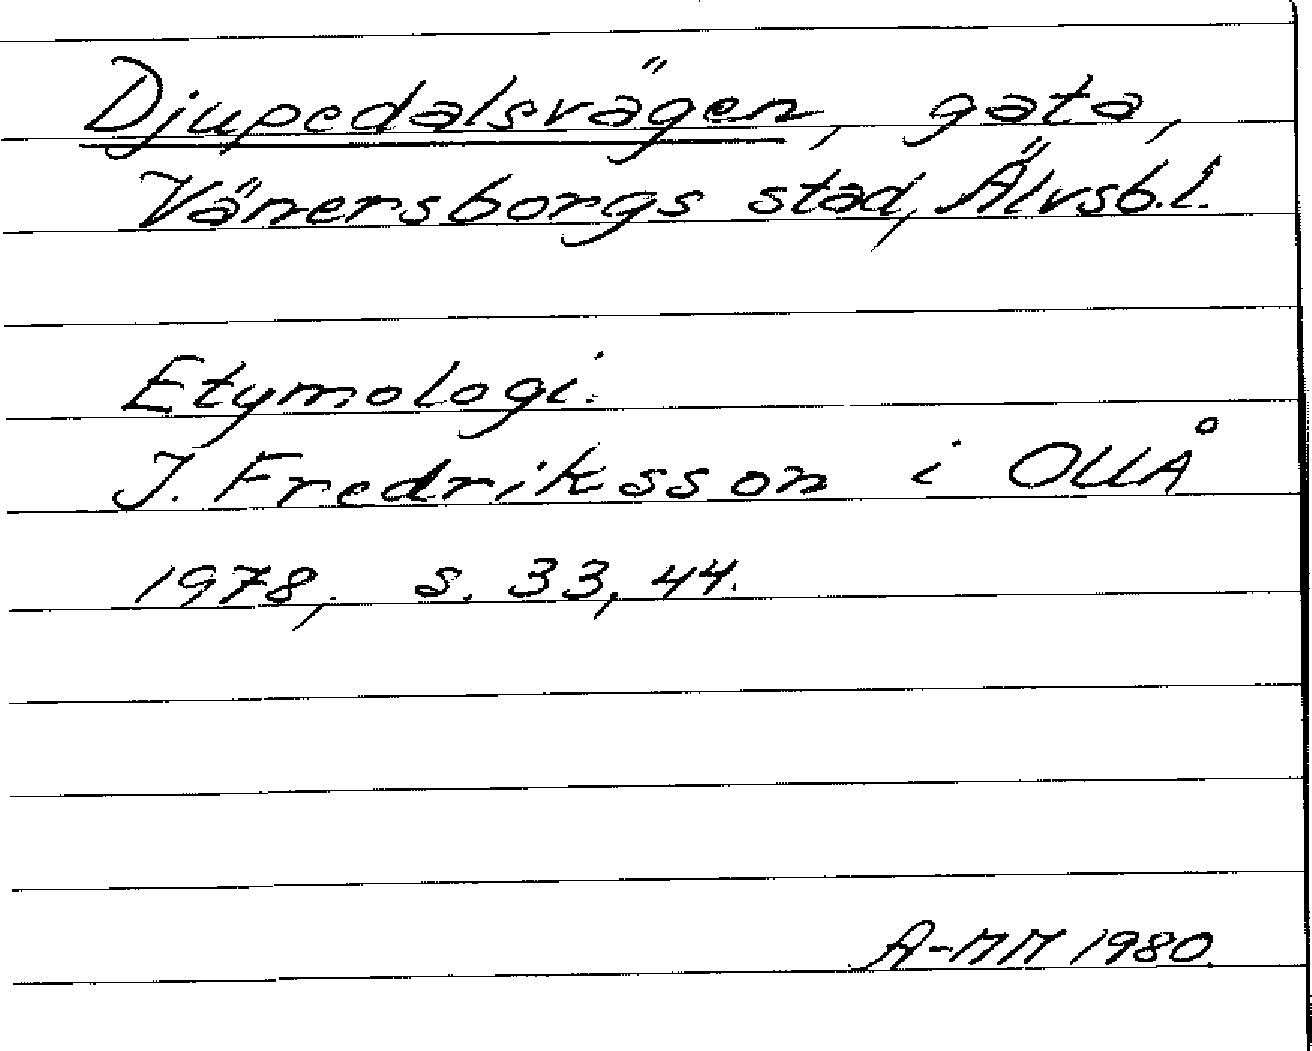 Djupedalsvägen, gata,
Vänersborgs stad, Älvsb.l.
Etymologi:
J. Fredriksson i OUÅ
1978, s. 33, 44.
A-MM 1980.